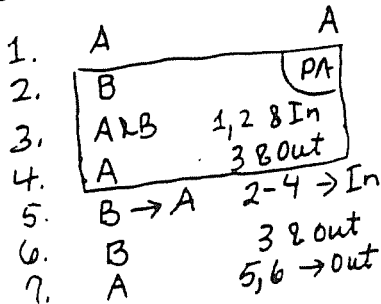 1. A A
2. B PA
3. A&B 1,2 & In
4. A 3 & Out
5. B → A 2-4 → In
6. B 3 & out
7. A 5,6 → Out